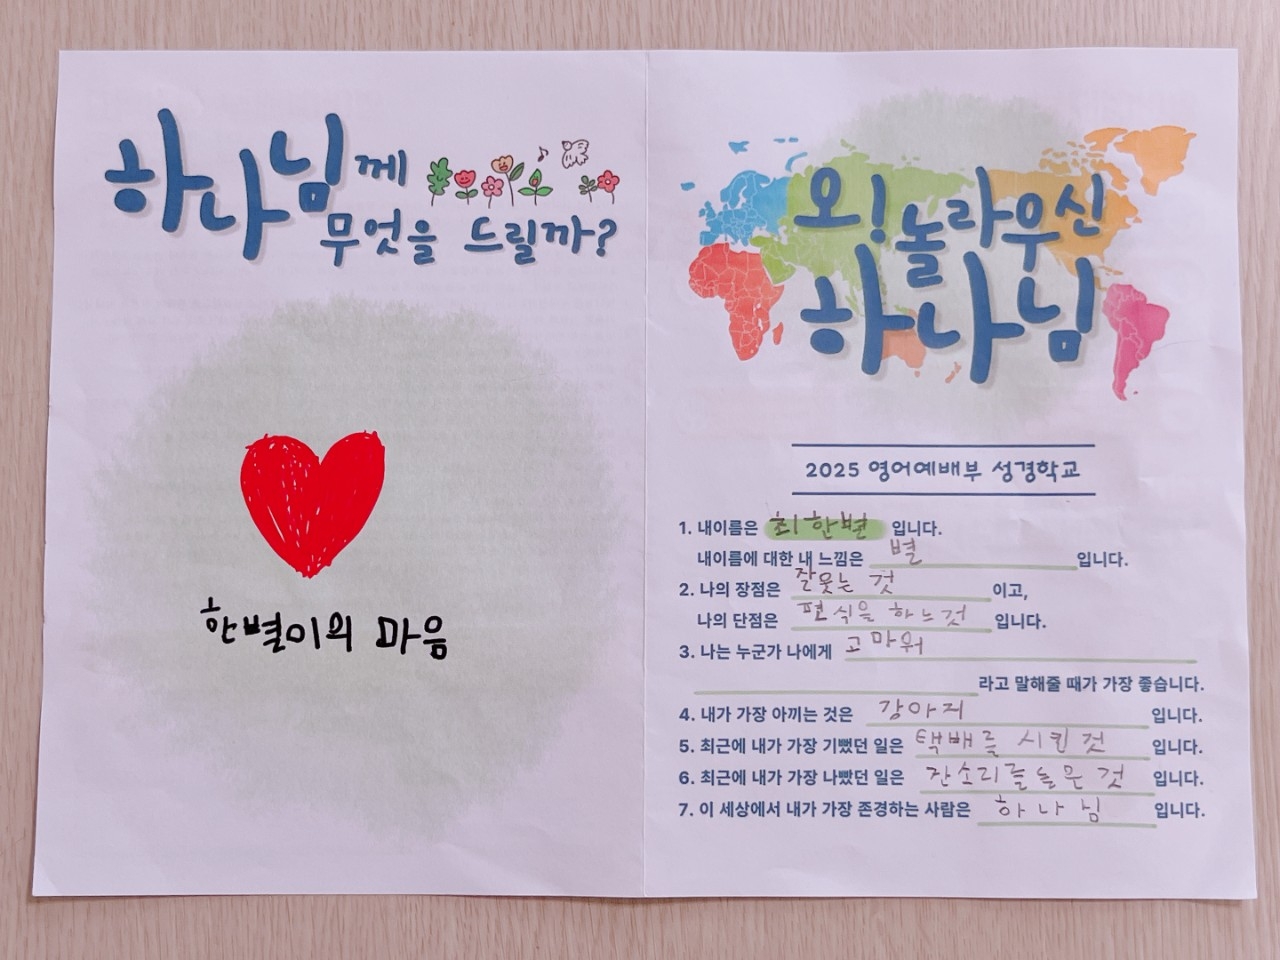 하나님께
무엇을 드릴까?
한별이의 마음
오! 놀라우신
하나님
2025 영어예배부 성경학교
1. 내이름은 최한별 입니다.
내이름에 대한 내 느낌은 별 입니다.
2. 나의 장점은 잘웃는 것 이고,
나의 단점은 편식을 하느것 입니다.
3. 나는 누군가 나에게 고마워
라고 말해줄 때가 가장 좋습니다.
4. 내가 가장 아끼는 것은 강아지 입니다.
5. 최근에 내가 가장 기뻤던 일은 택배를 시킨 것 입니다.
6. 최근에 내가 가장 나빴던 일은 잔소리를 들은 것 입니다.
7. 이 세상에서 내가 가장 존경하는 사람은 하나님 입니다.